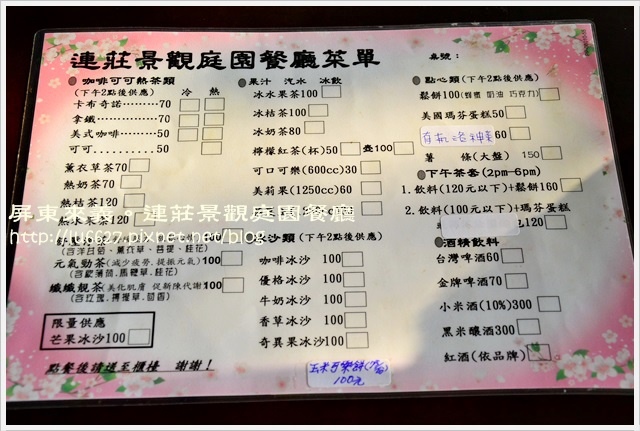 連莊景觀庭園餐廳菜單
桌號：
●咖啡可可熱茶類
(下午2點後供應) 冷 熱
卡布奇諾………70
拿鐵…………70
美式咖啡……50
可可………50
薰衣草茶70
熱奶茶70
熱桔茶120
熱水果茶120
(含洋甘菊、薰衣草、菩提、桂花)
元氣勁茶(減少疲勞、提振元氣)100
(含歐薄荷、馬鞭草、桂花)
纖纖靚茶(美化肌膚 促新陳代謝)100
(含玫瑰、檸檬草、茴香)
限量供應
芒果冰沙100
點餐後請送至櫃檯 謝謝！
●果汁 汽水 冰飲
冰水果茶100
冰桔茶100
冰奶茶80
檸檬紅茶(杯)50 壺100
可口可樂(600cc)30
美莉果(1250cc)60
沙類(下午2點後供應)
咖啡冰沙 100
優格冰沙 100
牛奶冰沙 100
香草冰沙 100
奇異果冰沙 100
100元
●點心類(下午2點後供應)
鬆餅100(蜂蜜 奶油 巧克力)
美國瑪芬蛋糕50
有机洛神花60
薯 條(大盤) 150
●下午茶套(2pm-6pm)
1.飲料(120元以下)+鬆餅160
2.飲料(100元以下)+瑪芬蛋糕
120
●酒精飲料
台灣啤酒60
金牌啤酒70
小米酒(10%)300
黑米釀酒300
紅酒(依品牌)
屏東來義。連莊景觀庭園餐廳
http://lu6627.pixnet.net/blog